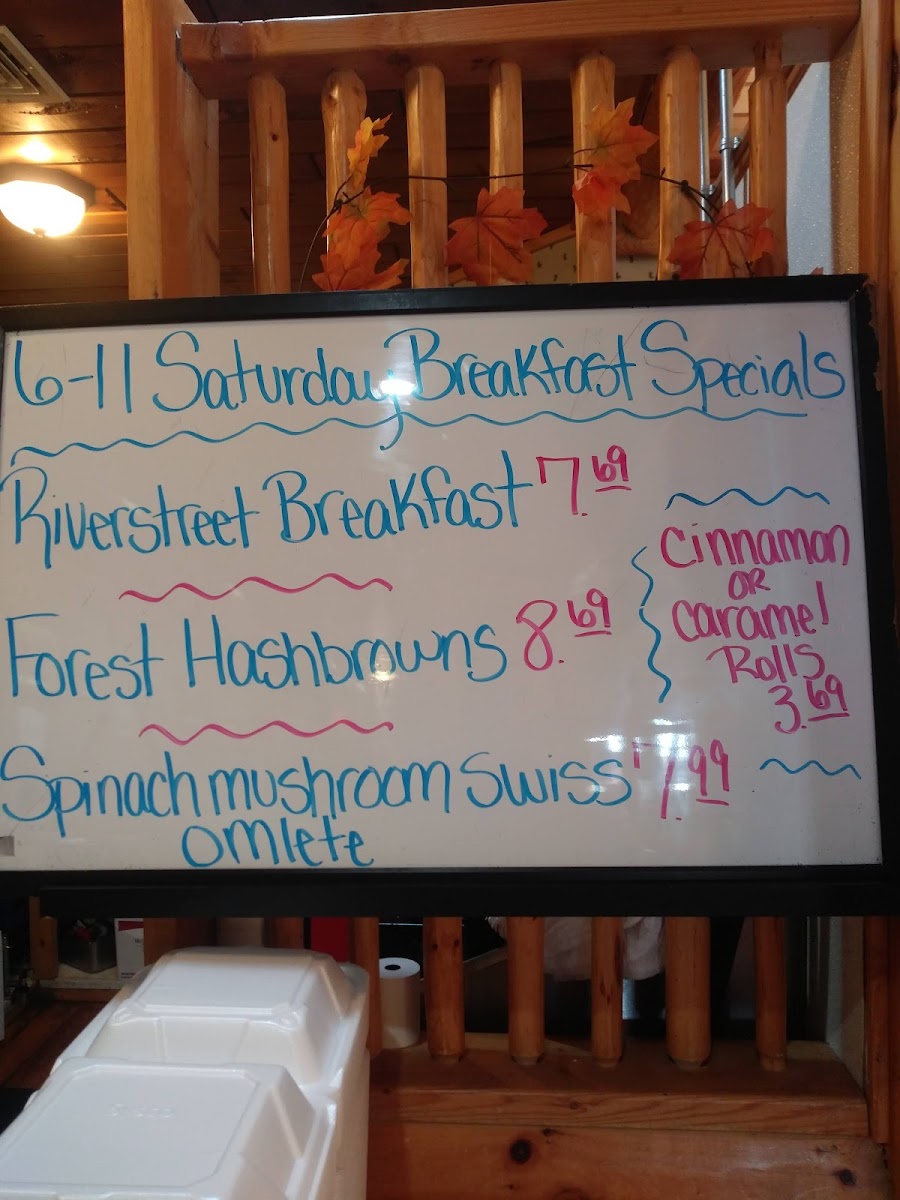 6-11 Saturday Breakfast Specials
Riverstreet Breakfast 7.69
Forest Hashbrowns 8.69
Spinach mushroom Swiss 7.99
omlete
Cinnamon
OR
Caramel
Rolls
3.69